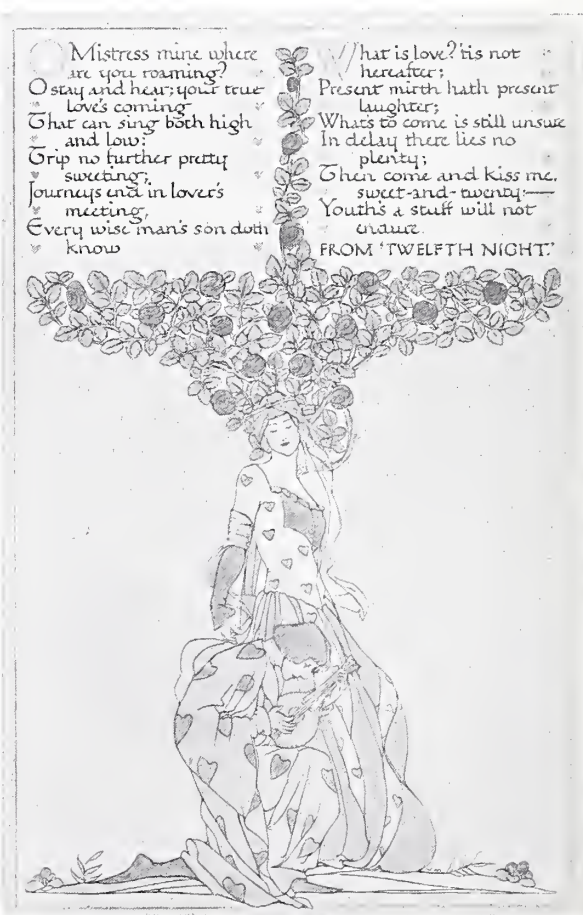 O Mistress mine where
are you roaming?
O stay and hear; your true
love's coming
That can sing both high
and low:
Trip no further pretty
sweeting;
Journeys end in lover's
meeting,
Every wise man's son doth
know
What is love? 'tis not
hereafter;
Present mirth hath present
laughter;
What's to come is still unsure
In delay there lies no
plenty;
Then come and kiss me,
sweet-and-twenty:—
Youth's a stuff will not
endure.
FROM 'TWELFTH NIGHT.'